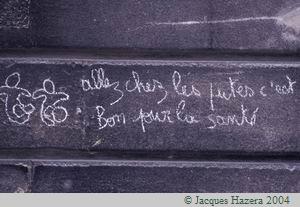 allez chez les putes c'est
Bon pour la santé
© Jacques Hazera 2004